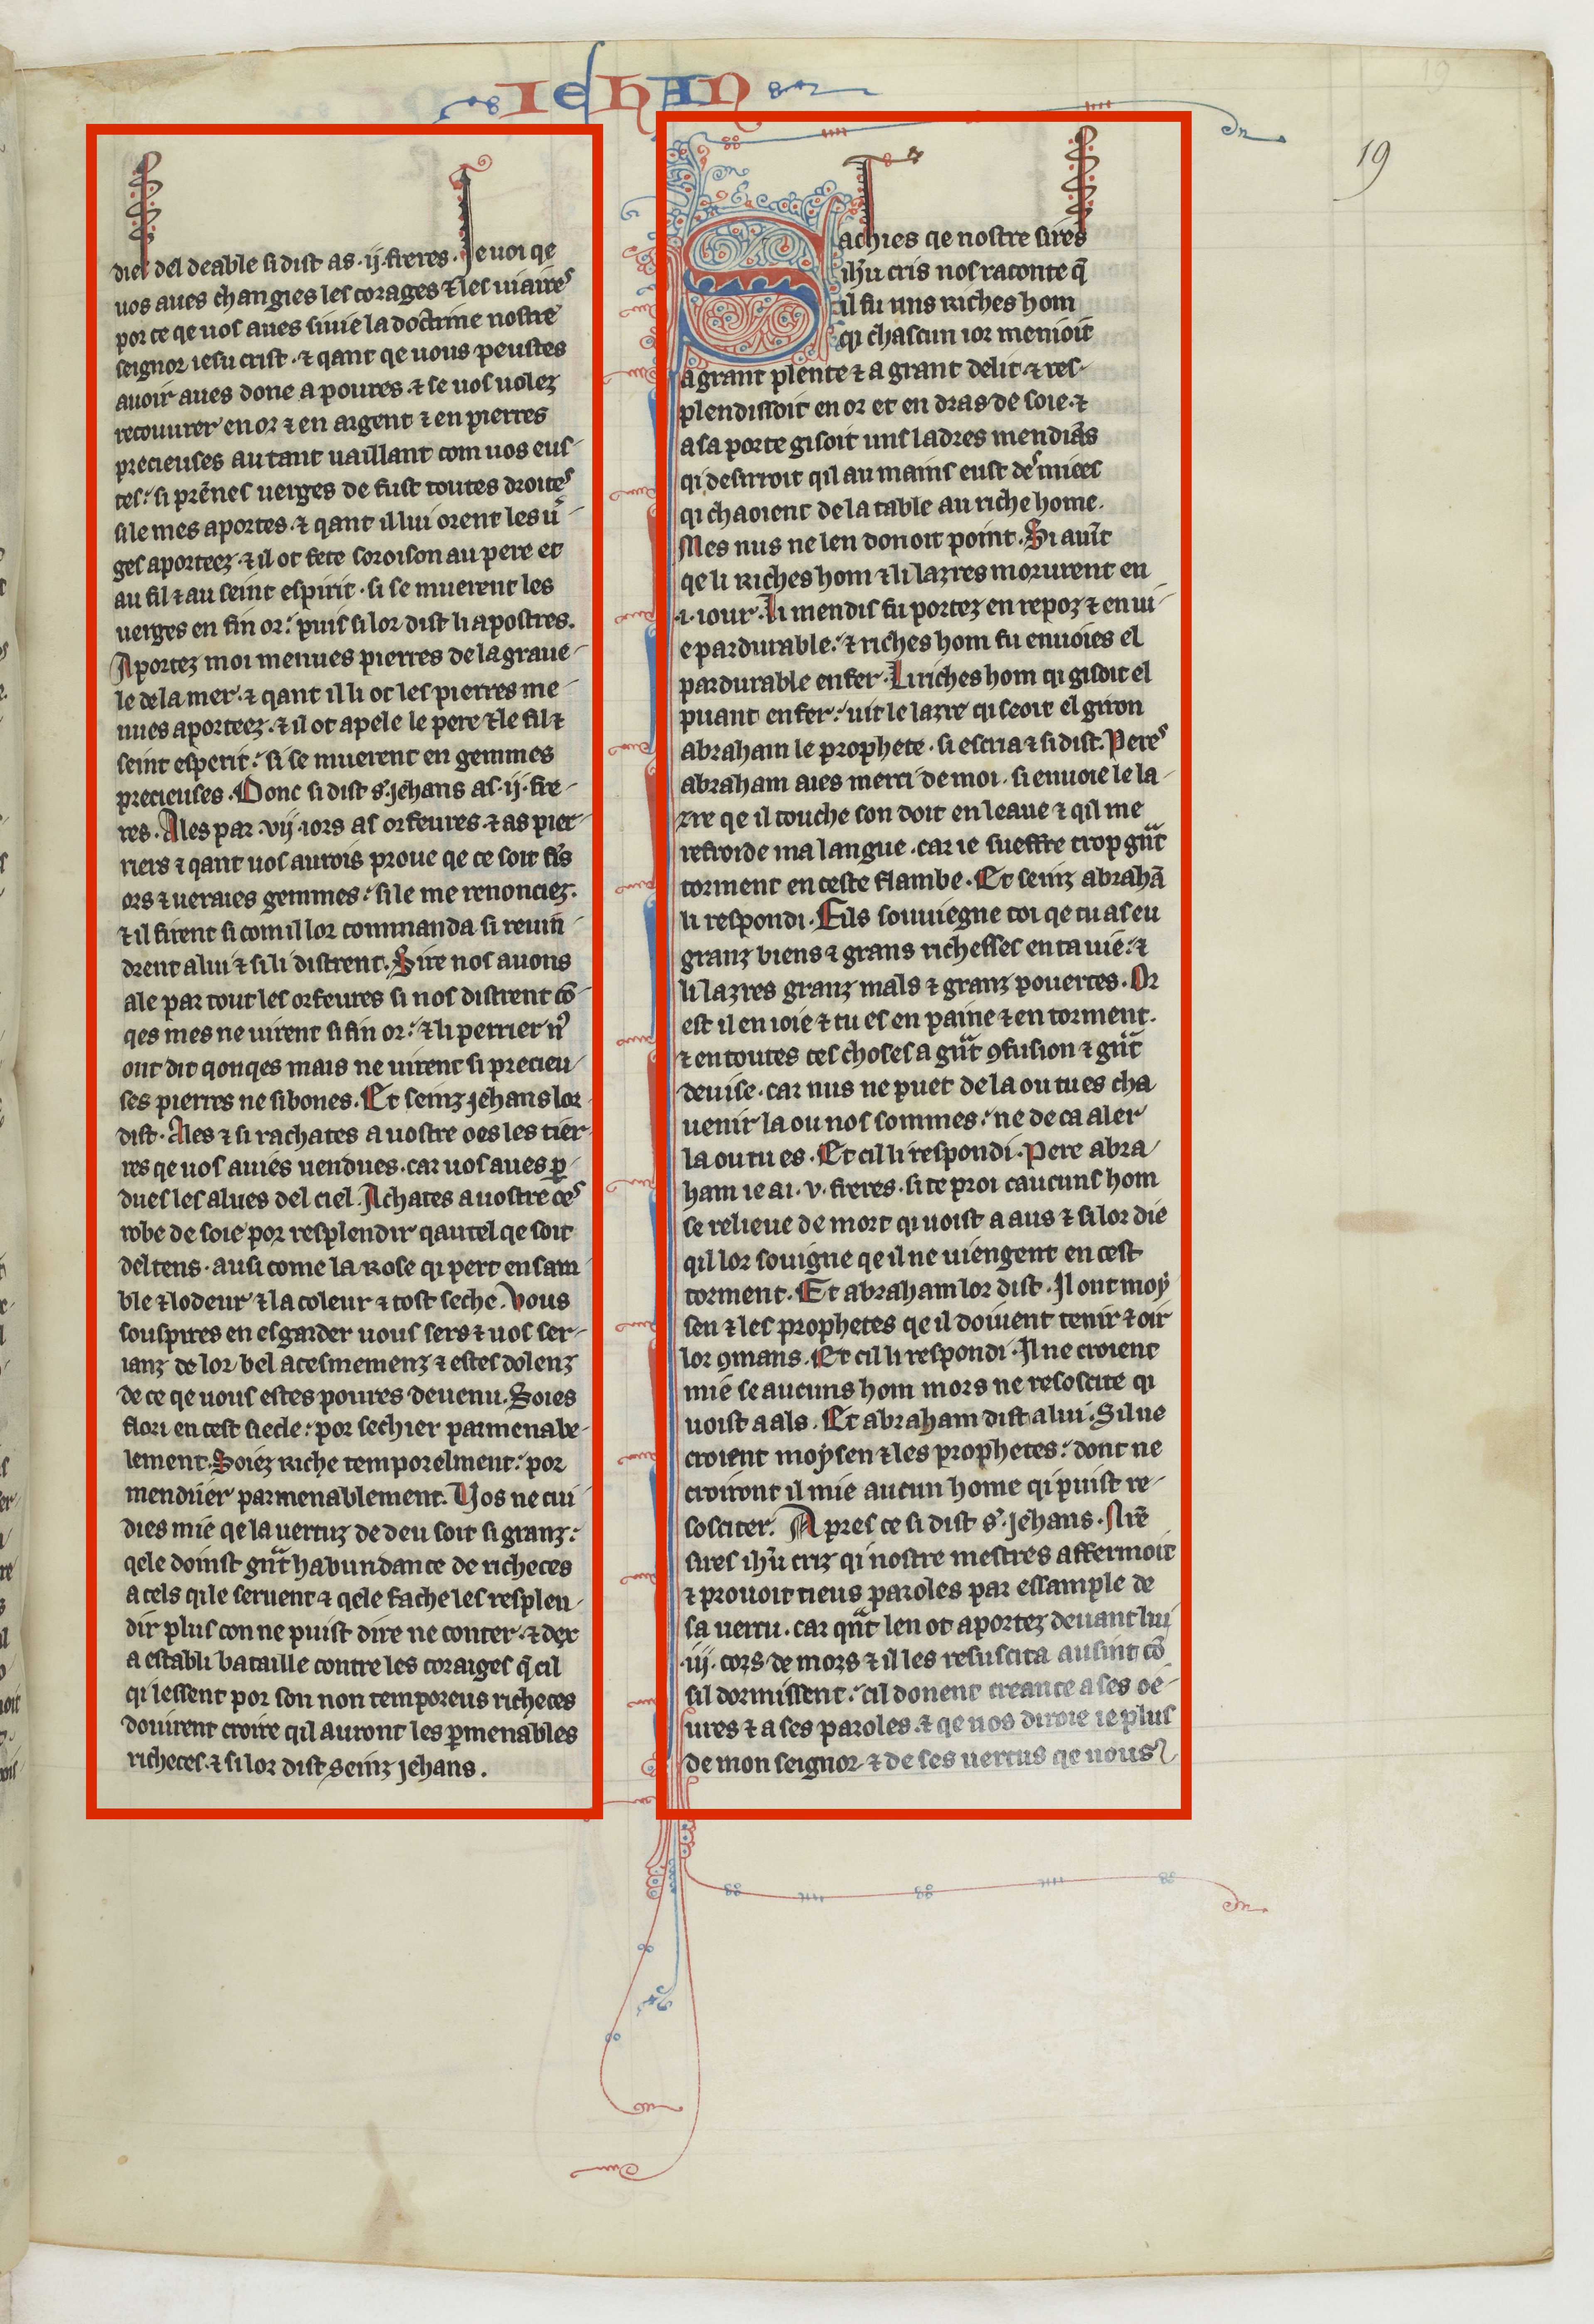 IEHAN
19
dies del deable si dist as .ij. freres. Je uoi qe
uos aues changies les corages ⁊ les uiaires
por ce qe uos aues siuie la doctrine nostre
seignor iesu crist. ⁊ qant qe uous peustes
auoir aues done a poures. ⁊ se uos uolez
recouurer en or ⁊ en argent ⁊ en pierres
precieuses autant uaillant com uos eus-
tes: si prēnes uerges de fust toutes droites
si le mes aportes. ⁊ qant il lui orent les u̾-
ges aporteez. ⁊ il ot fete soroison au pere et
au fil ⁊ au seint espirit. si se muerent les
uerges en fin or: puis si lor dist li apostres.
Aportez moi menues pierres de la graue-
le de la mer. ⁊ qant il li ot les pierres me-
nues aporteez. ⁊ il ot apele le pere ⁊ le fil ⁊
seint esperit: si se muerent en gemmes
precieuses. Donc si dist s. jehans as .ij. fre-
res. Ales par .vij. iors as orfeures. ⁊ as pier-
riers ⁊ qant uos aurois proue qe ce soit fis
ors ⁊ ueraies gemmes: si le me renonciez.
⁊ il firent si com il lor commanda si reuin
drent a lui ⁊ si li distrent. Sire nos auons
ale par tout les orfeures si nos distrent cō-
qes mes ne uirent si fin or: ⁊ li perrier n̾
ont dit qonqes mais ne uirent si precieu-
ses pierres ne si bones. Et seinz jehans lor
dist. Ales ⁊ si rachates a uostre oes les tier-
res qe uos auies uendues. car uos aues ꝑ-
dues les alues del ciel. Achates a uostre oes
robe de soie por resplendir qautel qe soit
del tens. ausi come la Rose qi pert ensam
ble ⁊ lodeur ⁊ la coleur ⁊ tost seche. Vous
souspires en esgarder uous sers ⁊ uos ser-
ianz de lor bel acesmemenz ⁊ estes dolenz
de ce qe uous estes poures deuenu. Soies
flori en cest siecle: por sechier parmenable-
lement. Soiez Riche temporelment: por
mendiier parmenablement. Uos ne cui-
dies mie qe la uertuz de deu soit si granz:
qele doinst gn̄t habundance de richeces
a cels qi le seruent ⁊ qele fache les resplen-
dir plus con ne puist dire ne conter. ⁊ dex
a establi bataille contre les coraiges q̄ cil
qi lessent por son non temporeus richeces
douirent croire qil auront les ꝑmenables
richeces. ⁊ si lor dist seinz jehans.
Sachies qe nostre sires
ih̄u cris nos raconte q̄
il fu uns Riches hom
qi chascun ior menioit
a grant plente ⁊ a grant delit. ⁊ res-
plendissoit en or et en dras de soie. ⁊
a sa porte gisoit uns ladres mendiās
qi desirroit qil au mains eust des miees
qi chaoient de la table au riche home.
Mes nus ne len donoit point. Si auīt
qe li Riches hom ⁊ li lazres morurent en
.i. iour. li mendis fu portez en repoz ⁊ en ui-
e pardurable: ⁊ riches hom fu enuoies el
pardurable enfer. Li riches hom qi gisoit el
puant enfer: uit le lazre qi seoit el giron
abraham le prophete. si escria ⁊ si dist. Peres
abraham aies merci de moi. si enuoie le la-
zre qe il touche son doit en leaue ⁊ qil me
refroide ma langue. car ie sueffre trop gn̄t
torment en ceste flambe. Et seinz abrahā
li respondi. Fils souuiegne toi qe tu as eu
granz biens ⁊ grans richesses en ta uie: ⁊
li lazres granz mals ⁊ granz pouertes. Or
est il en ioie ⁊ tu es en paine ⁊ en torment.
⁊ en toutes ces choses a gn̄t ꝯfusion ⁊ gn̄t
deuise. car nus ne puet de la ou tu es cha
uenir la ou nos sommes: ne de ca aler
la ou tu es. Et cil li respondi. Pere abra-
ham ie ai .v. freres. si te proi caucuns hom
se relieue de mort qi uoist a aus ⁊ si lor die
qil lor souigne qe il ne uiengent en cest
torment. Et abraham lor dist. Il ont moy
sen ⁊ les prophetes qe il doiuent tenir ⁊ oir
lor ꝯmans. Et cil li respondi. Il ne croient
mie se aucuns hom mors ne resoscite qi
uoist a als. Et abraham dist a lui. Sil ne
croient moysen ⁊ les prophetes: dont ne
croiront il mie aucun home qi puist re-
sosciter. Apres ce si dist s. jehans. Nr̄e
sires ih̄u criz qi nostre mestres affermoit
⁊ prouoit tieus paroles par essample de
sa uertu. car qn̄t len ot aportez deuant lui
.iij. cors de mors ⁊ il les resuscita ausint cō
sil dormissent: cil donent creance a ses oe-
ures ⁊ a ses paroles. ⁊ qe nos diroie ie plus
de mon seignor ⁊ de ses uertus qe uous